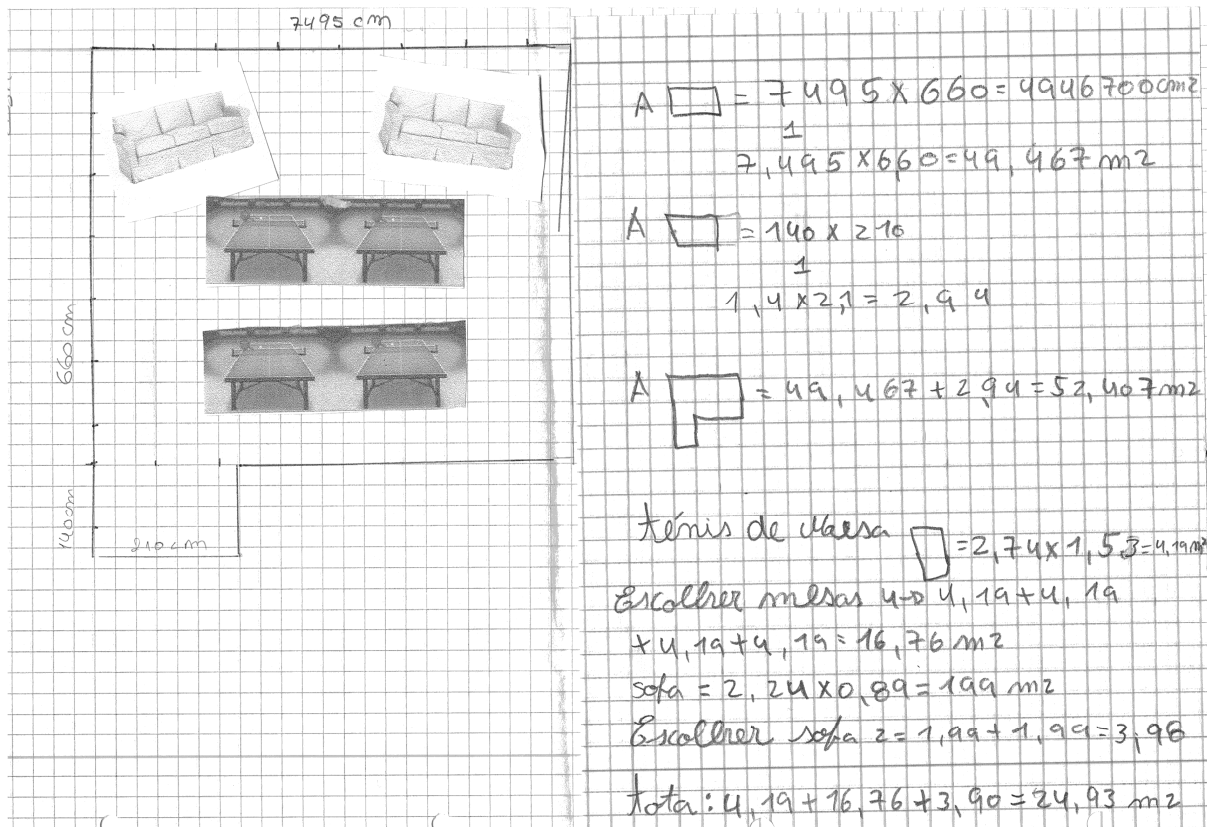 7495 cm
660 cm
140cm
210 cm
A = 7495 x 660 = 4946700cm2
1
7,495 x 6,60 = 49,467 m2
A = 140 x 210
1
1,4 x 2,1 = 2,94
A = 49,467 + 2,94 = 52,407 m2
ténis de Maesa = 2,74 x 1,53 = 4,19 m2
Escolher mesas 4→ 4,19 + 4,19
+ 4,19 + 4,19 = 16,76 m2
sofa = 2,24 x 0,89 = 199 m2
Escolher sofa 2 = 1,99 + 1,99 = 3,98
tota: 4,19 + 16,76 + 3,90 = 24,93 m2